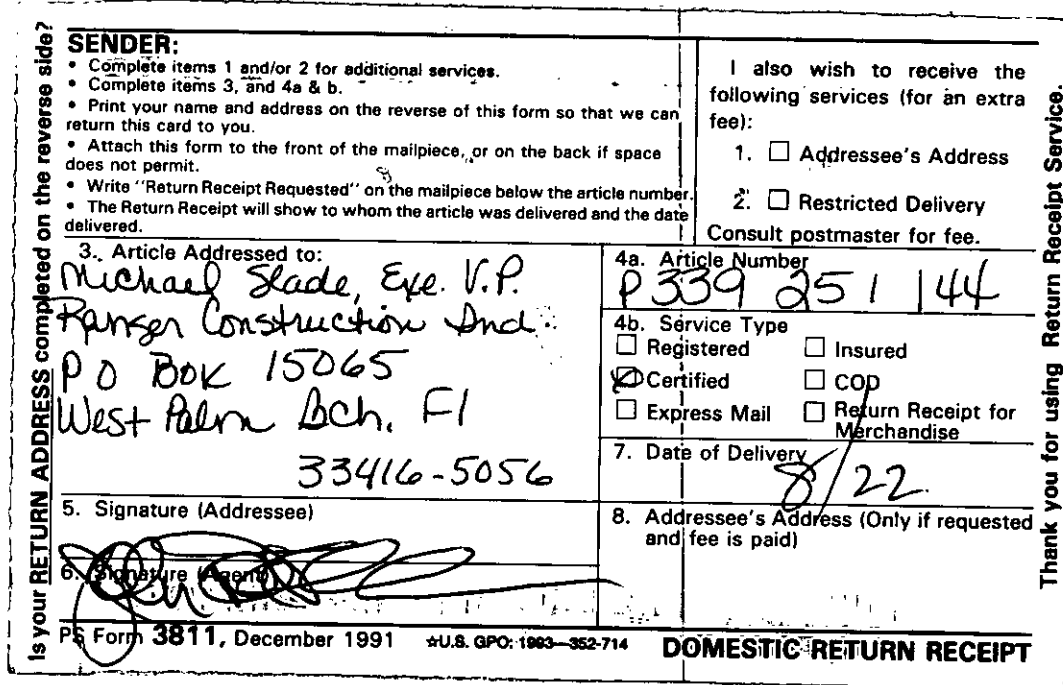 Is your RETURN ADDRESS completed on the reverse side?
SENDER:
• Complete items 1 and/or 2 for additional services.
• Complete items 3, and 4a & b.
• Print your name and address on the reverse of this form so that we can
return this card to you.
• Attach this form to the front of the mailpiece, or on the back if space
does not permit.
• Write "Return Receipt Requested" on the mailpiece below the article number.
• The Return Receipt will show to whom the article was delivered and the date
delivered.
I also wish to receive the
following services (for an extra
fee):
1. ☐ Addressee's Address
2. ☐ Restricted Delivery
Consult postmaster for fee.
3. Article Addressed to:
Michael Slade, Exe. V.P.
Ranger Construction Ind.
P O Box 15065
West Palm Bch, Fl
33416-5056
4a. Article Number
P 339 251 144
4b. Service Type
☐ Registered ☐ Insured
☒ Certified ☐ COD
☐ Express Mail ☐ Return Receipt for
Merchandise
7. Date of Delivery
8/22
5. Signature (Addressee)
8. Addressee's Address (Only if requested
and fee is paid)
6. Signature (Agent)
PS Form 3811, December 1991 ☆U.S. GPO: 1993-352-714 DOMESTIC RETURN RECEIPT
Thank you for using Return Receipt Service.